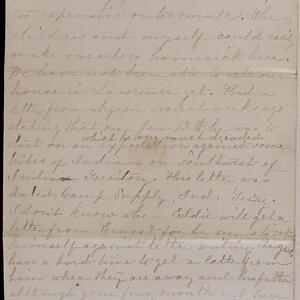 too expensive or too small. The
children and myself could easily
make ourselves homesick here.
We have not been able to rent our
house in Lawrence yet. Had a
letter from Myron several weeks ago
stating that on Jan 12th he was to
which he very much dreaded
start on an expedition against some
tribes of Indians southwest of
Indian Territory. His letter was
dated Camp Supply, Ind. Ter'y.
I don't know when Eddie will get a
letter from Ernest for he seems to set
himself against letter writing. We
have a hard time to get a letter from
him when they are away and his father
although gone four months out here